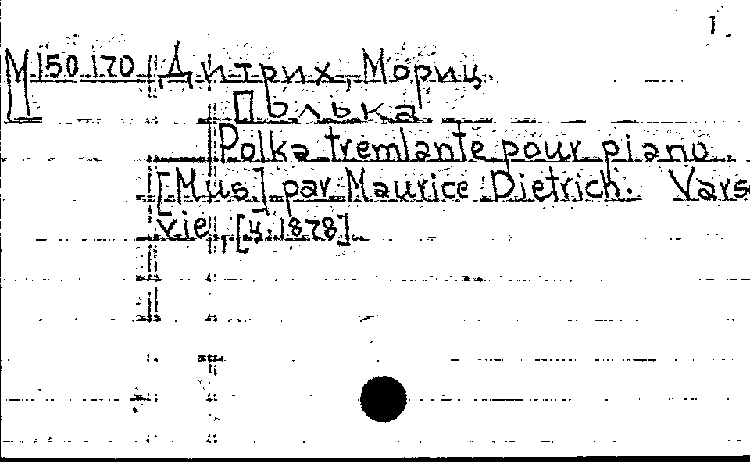 1
М 150.170 Дитрих, Мориц
Полька
Polka tremlante pour piano.
[Mus] par Maurice Dietrich. Vars
vie, [ц. 1878]